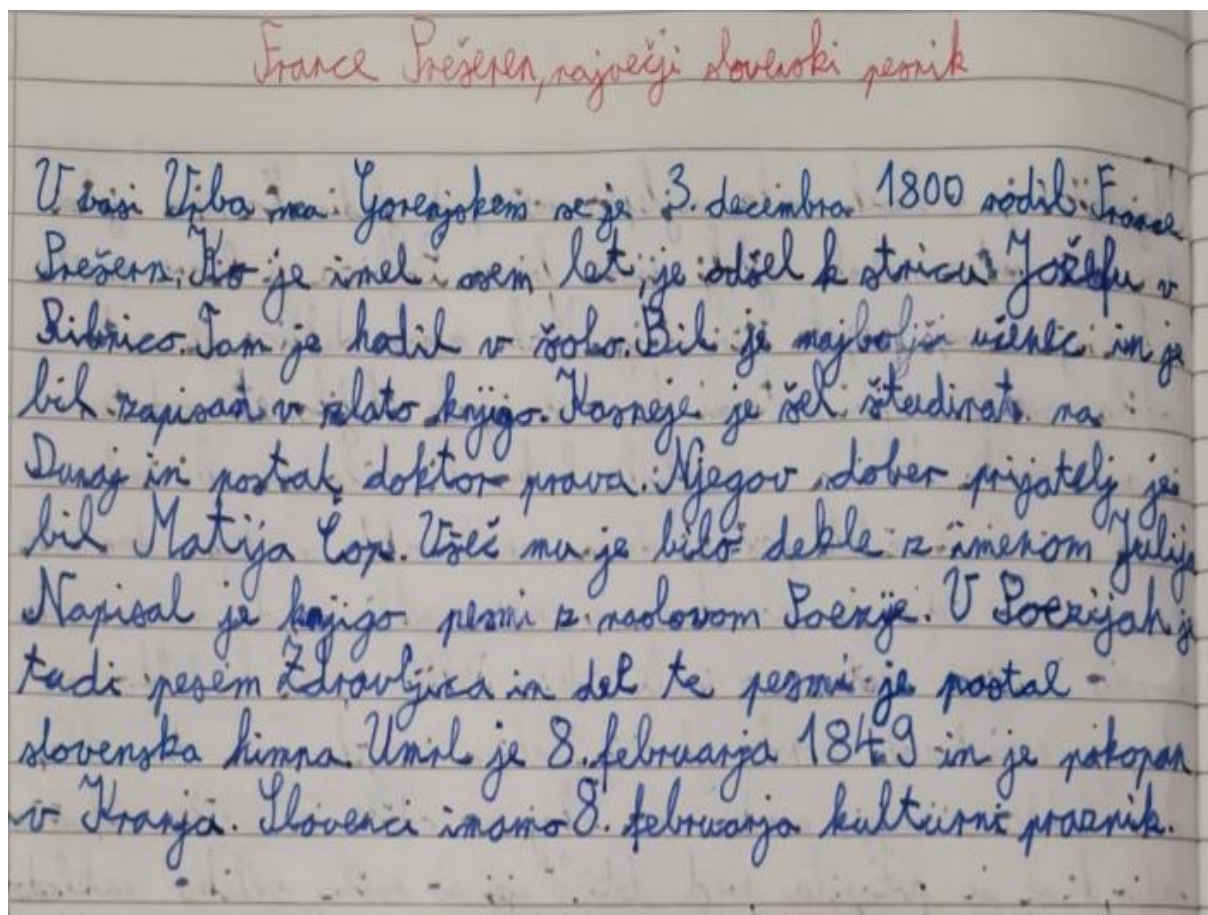 France Prešeren, največji slovenski pesnik
V vasi Vrba na Gorenjskem se je 3. decembra 1800 rodil France
Prešern. Ko je imel osem let, je odšel k stricu Jožefu v
Ribnico. Tam je hodil v šolo. Bil je najboljši učenec in je
bil zapisan v zlato knjigo. Kasneje je šel študirat na
Dunaj in postal doktor prava. Njegov dober prijatelj je
bil Matija Čop. Všeč mu je bilo dekle z imenom Julija
Napisal je knjigo pesmi z naslovom Poezije. V Poezijah je
tudi pesem Zdravljica in del te pesmi je postal
slovenska himna. Umrl je 8. februarja 1849 in je pokopan
v Kranja. Slovenci imamo 8. februarja kulturni praznik.